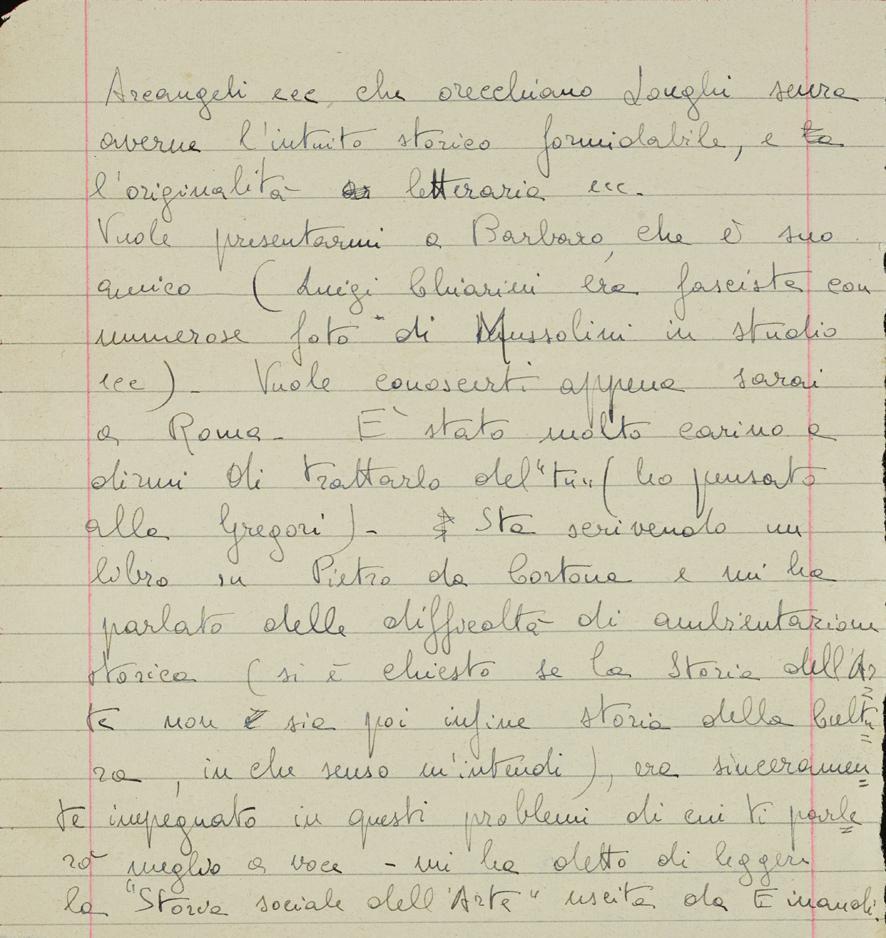 Arcangeli ecc, che orecchiano Longhi senza
averne l'intuito storico formidabile, e la
l'originalità letteraria ecc.
Vuole presentarmi a Barbaro, che è suo
amico (Luigi Chiarini era fascista con
numerose foto di Mussolini in studio
ecc). Vuole conoscerti appena sarai
a Roma. E' stato molto carino a
dirmi di trattarlo del "tu" (ho pensato
alla Gregori). Sta scrivendo un
libro su Pietro da Cortona e mi ha
parlato delle difficoltà di ambientazione
storica (si è chiesto se la Storia dell'Ar=
te non è sia poi infine storia della Cultu=
ra, in che senso m'intendi), era sinceramen=
te impegnato in questi problemi di cui ti parle=
rò meglio a voce - mi ha detto di leggere
la "Storia sociale dell'Arte" uscita da Einaudi.